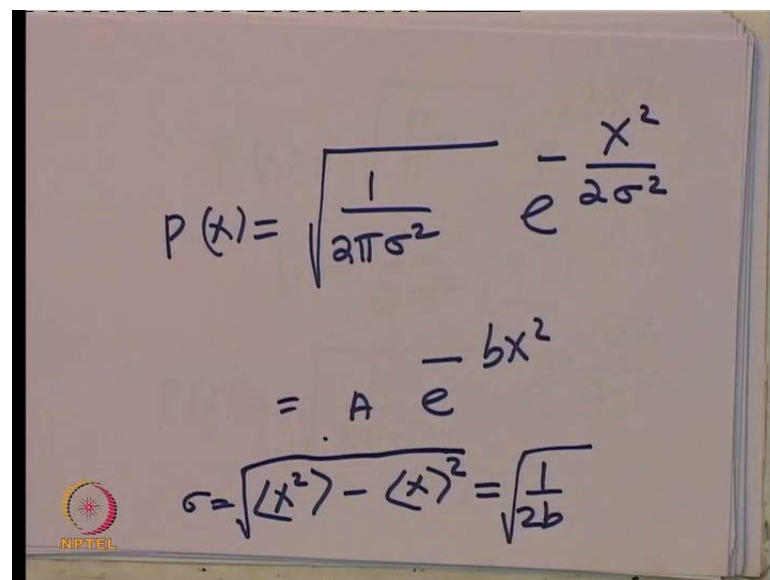 P(x) = √(1/(2πσ²)) e^(-x²/(2σ²))
= A e^(-bx²)
σ = √(⟨x²⟩ - ⟨x⟩²) = √(1/(2b))
NPTEL